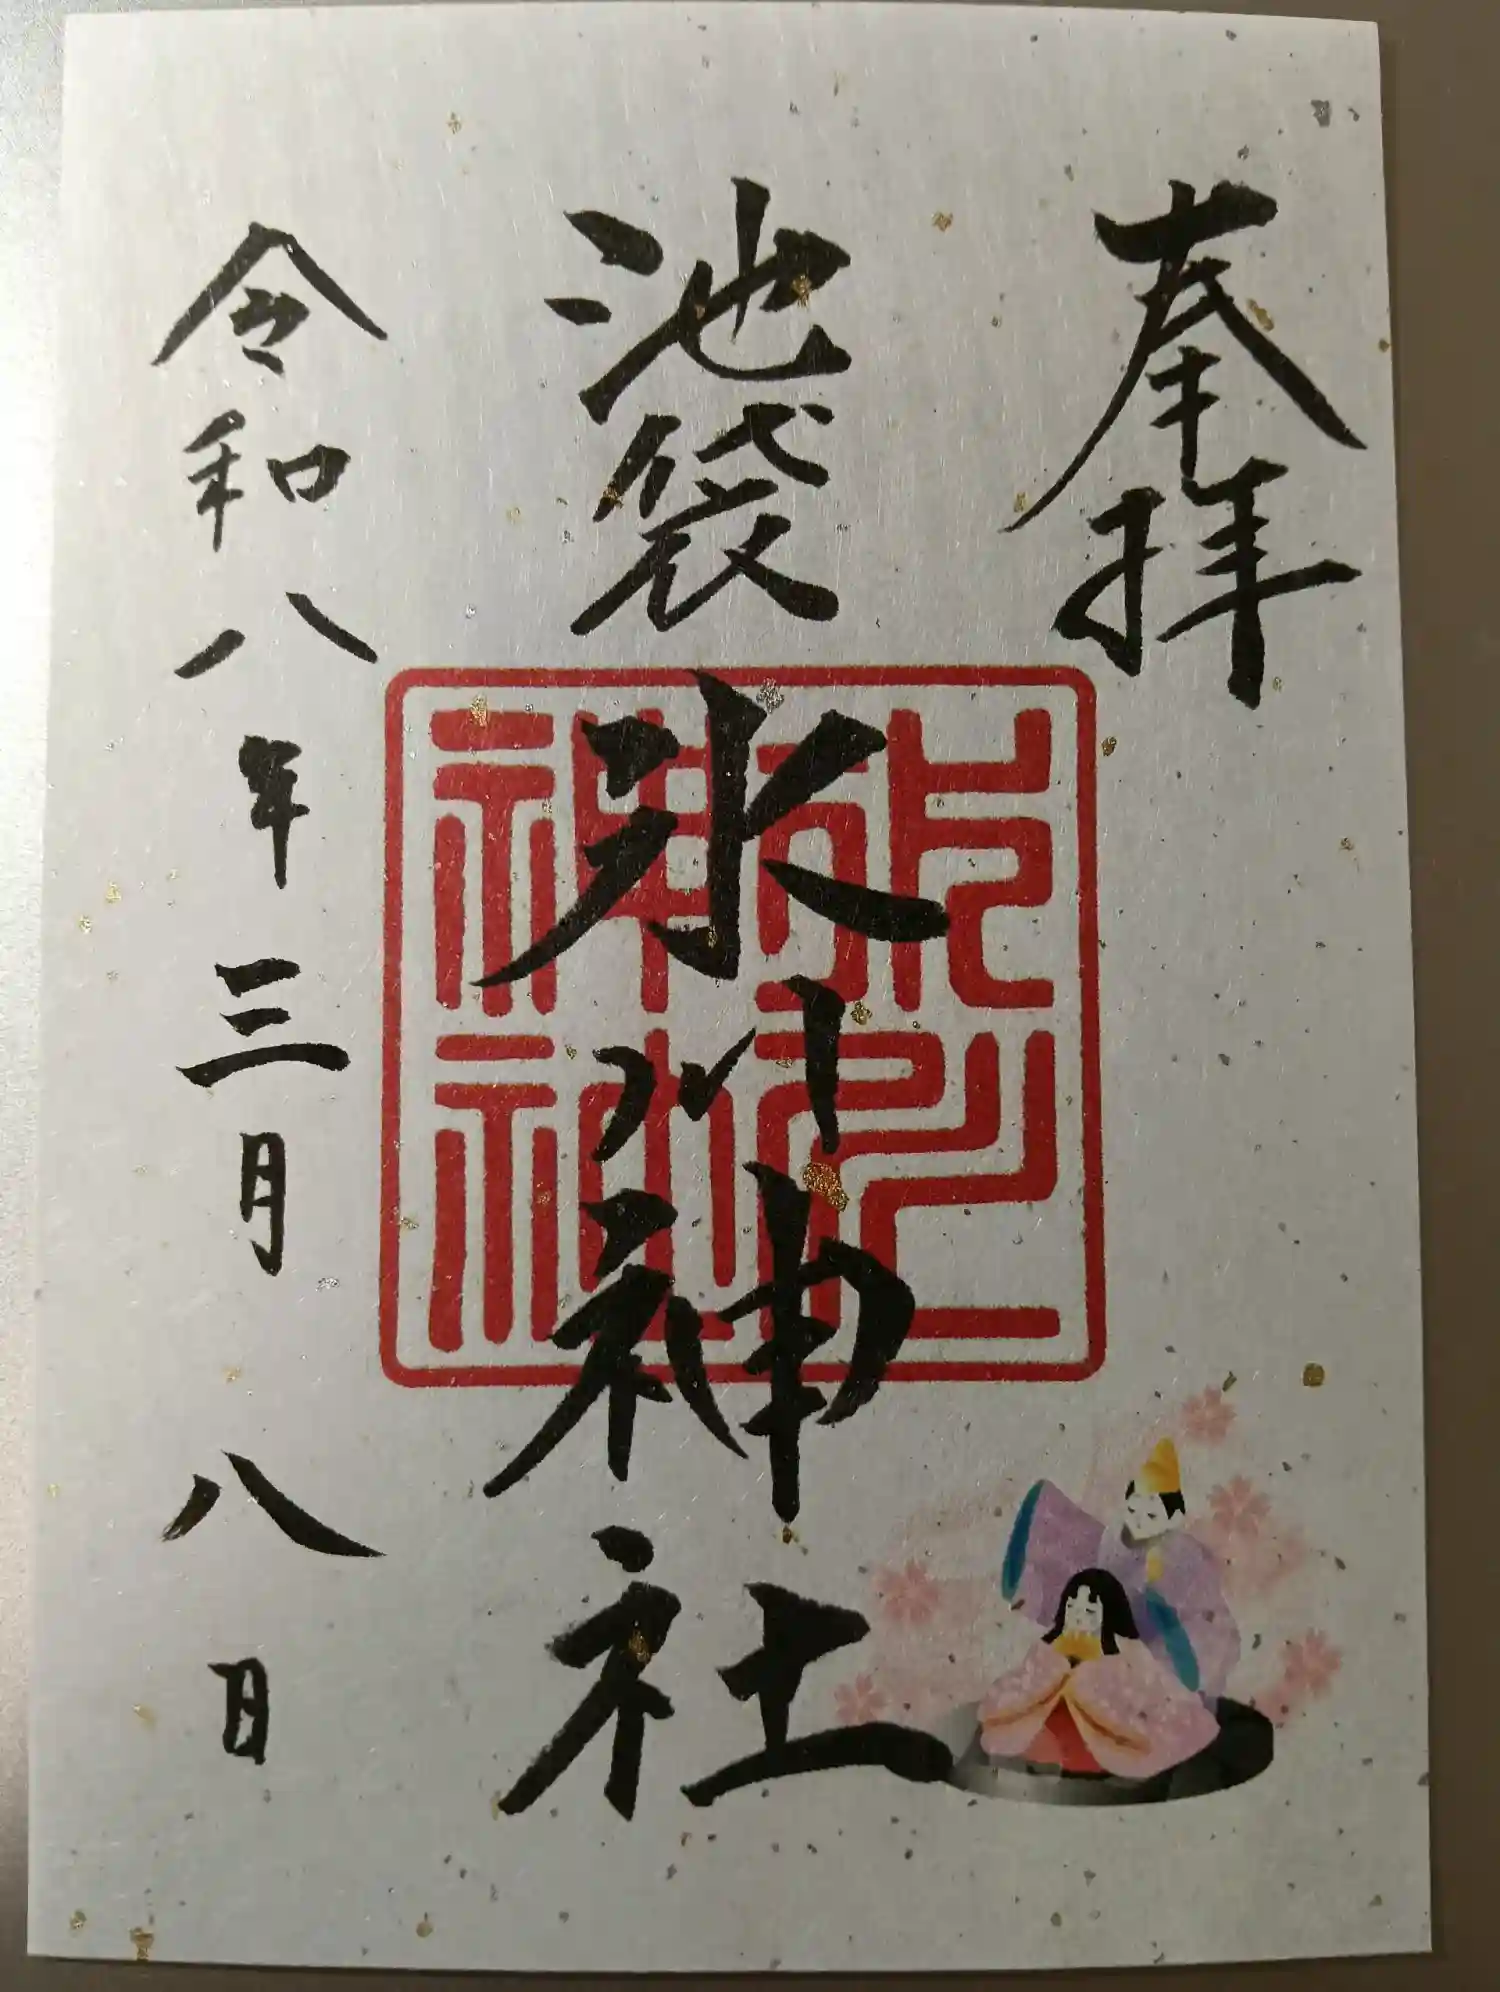 奉拝
池袋氷川神社
氷川神社
令和八年三月八日